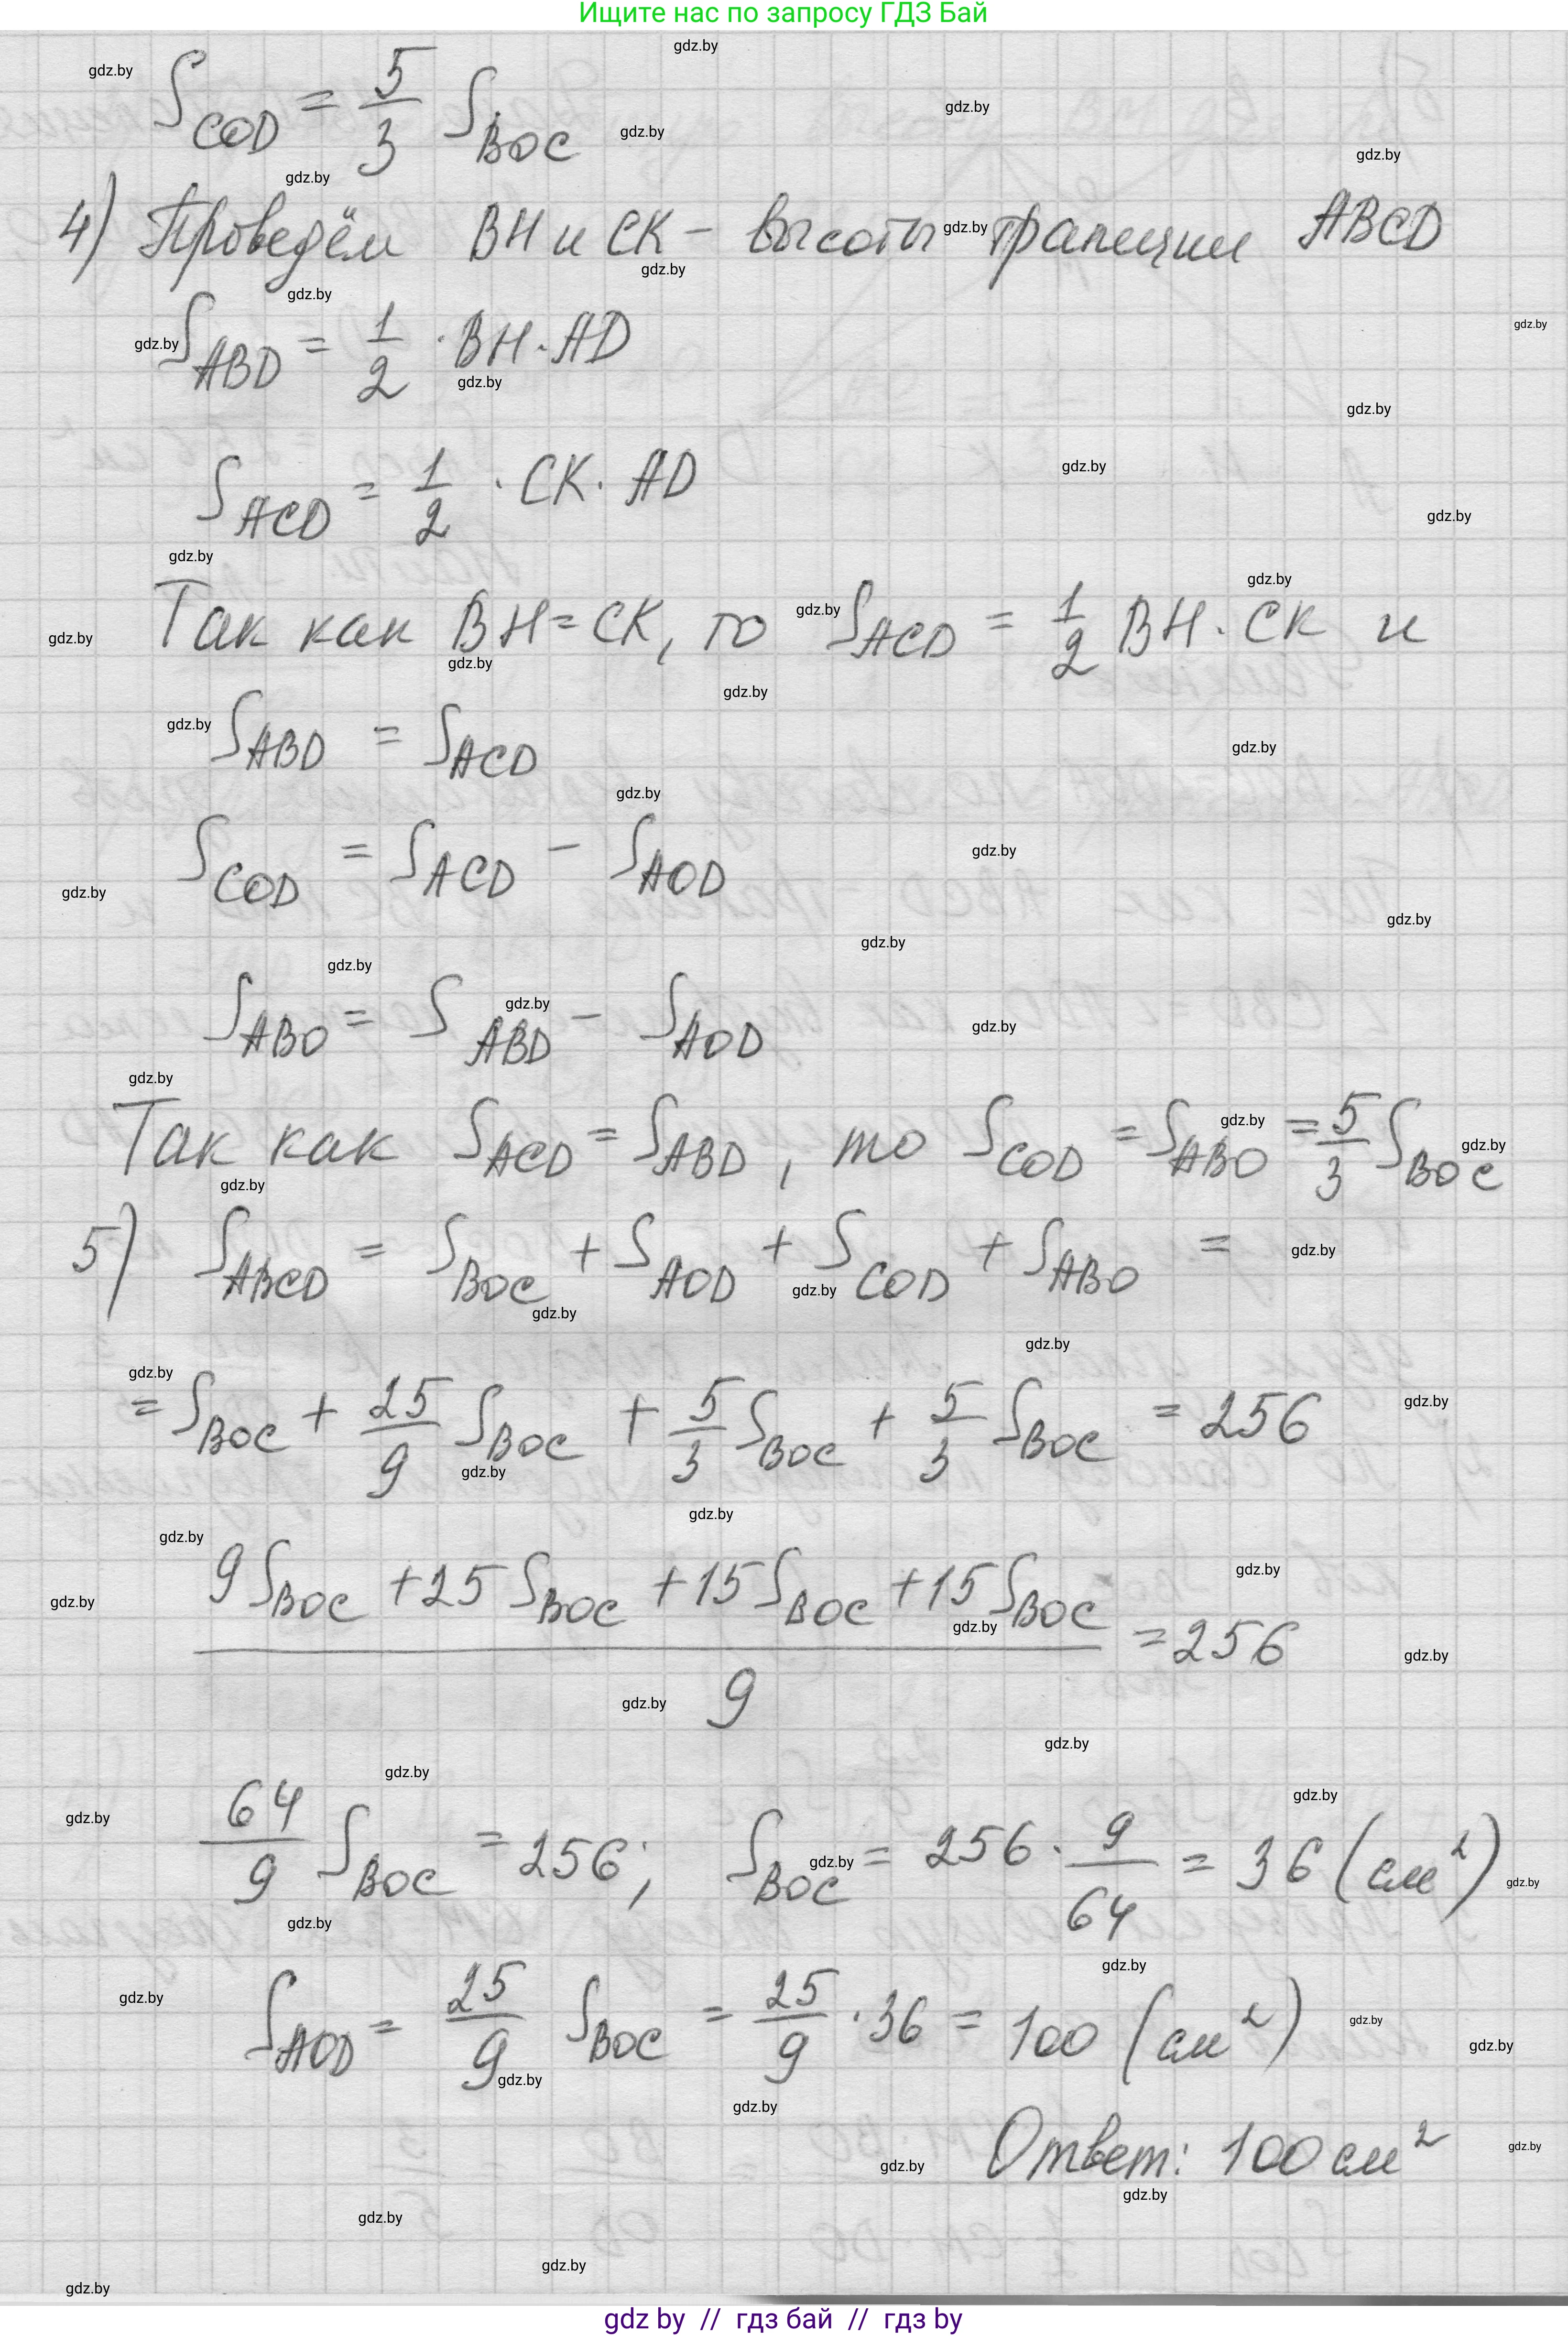 Ищите нас по запросу ГДЗ Бай
S_COD = 5/3 S_BOC
4) Проведём BH и CK – высоты трапеции ABCD
S_ABD = 1/2 · BH · AD
S_ACD = 1/2 · CK · AD
Так как BH = CK, то S_ACD = 1/2 BH · CK и
S_ABD = S_ACD
S_COD = S_ACD – S_AOD
S_ABO = S_ABD – S_AOD
Так как S_ACD = S_ABD, то S_COD = S_ABO = 5/3 S_BOC
5) S_ABCD = S_BOC + S_AOD + S_COD + S_ABO =
= S_BOC + 25/9 S_BOC + 5/3 S_BOC + 5/3 S_BOC = 256
(9 S_BOC + 25 S_BOC + 15 S_BOC + 15 S_BOC)/9 = 256
64/9 S_BOC = 256; S_BOC = 256 · 9/64 = 36 (см²)
S_AOD = 25/9 S_BOC = 25/9 · 36 = 100 (см²)
Ответ: 100 см²
gdz by // гдз бай // гдз by